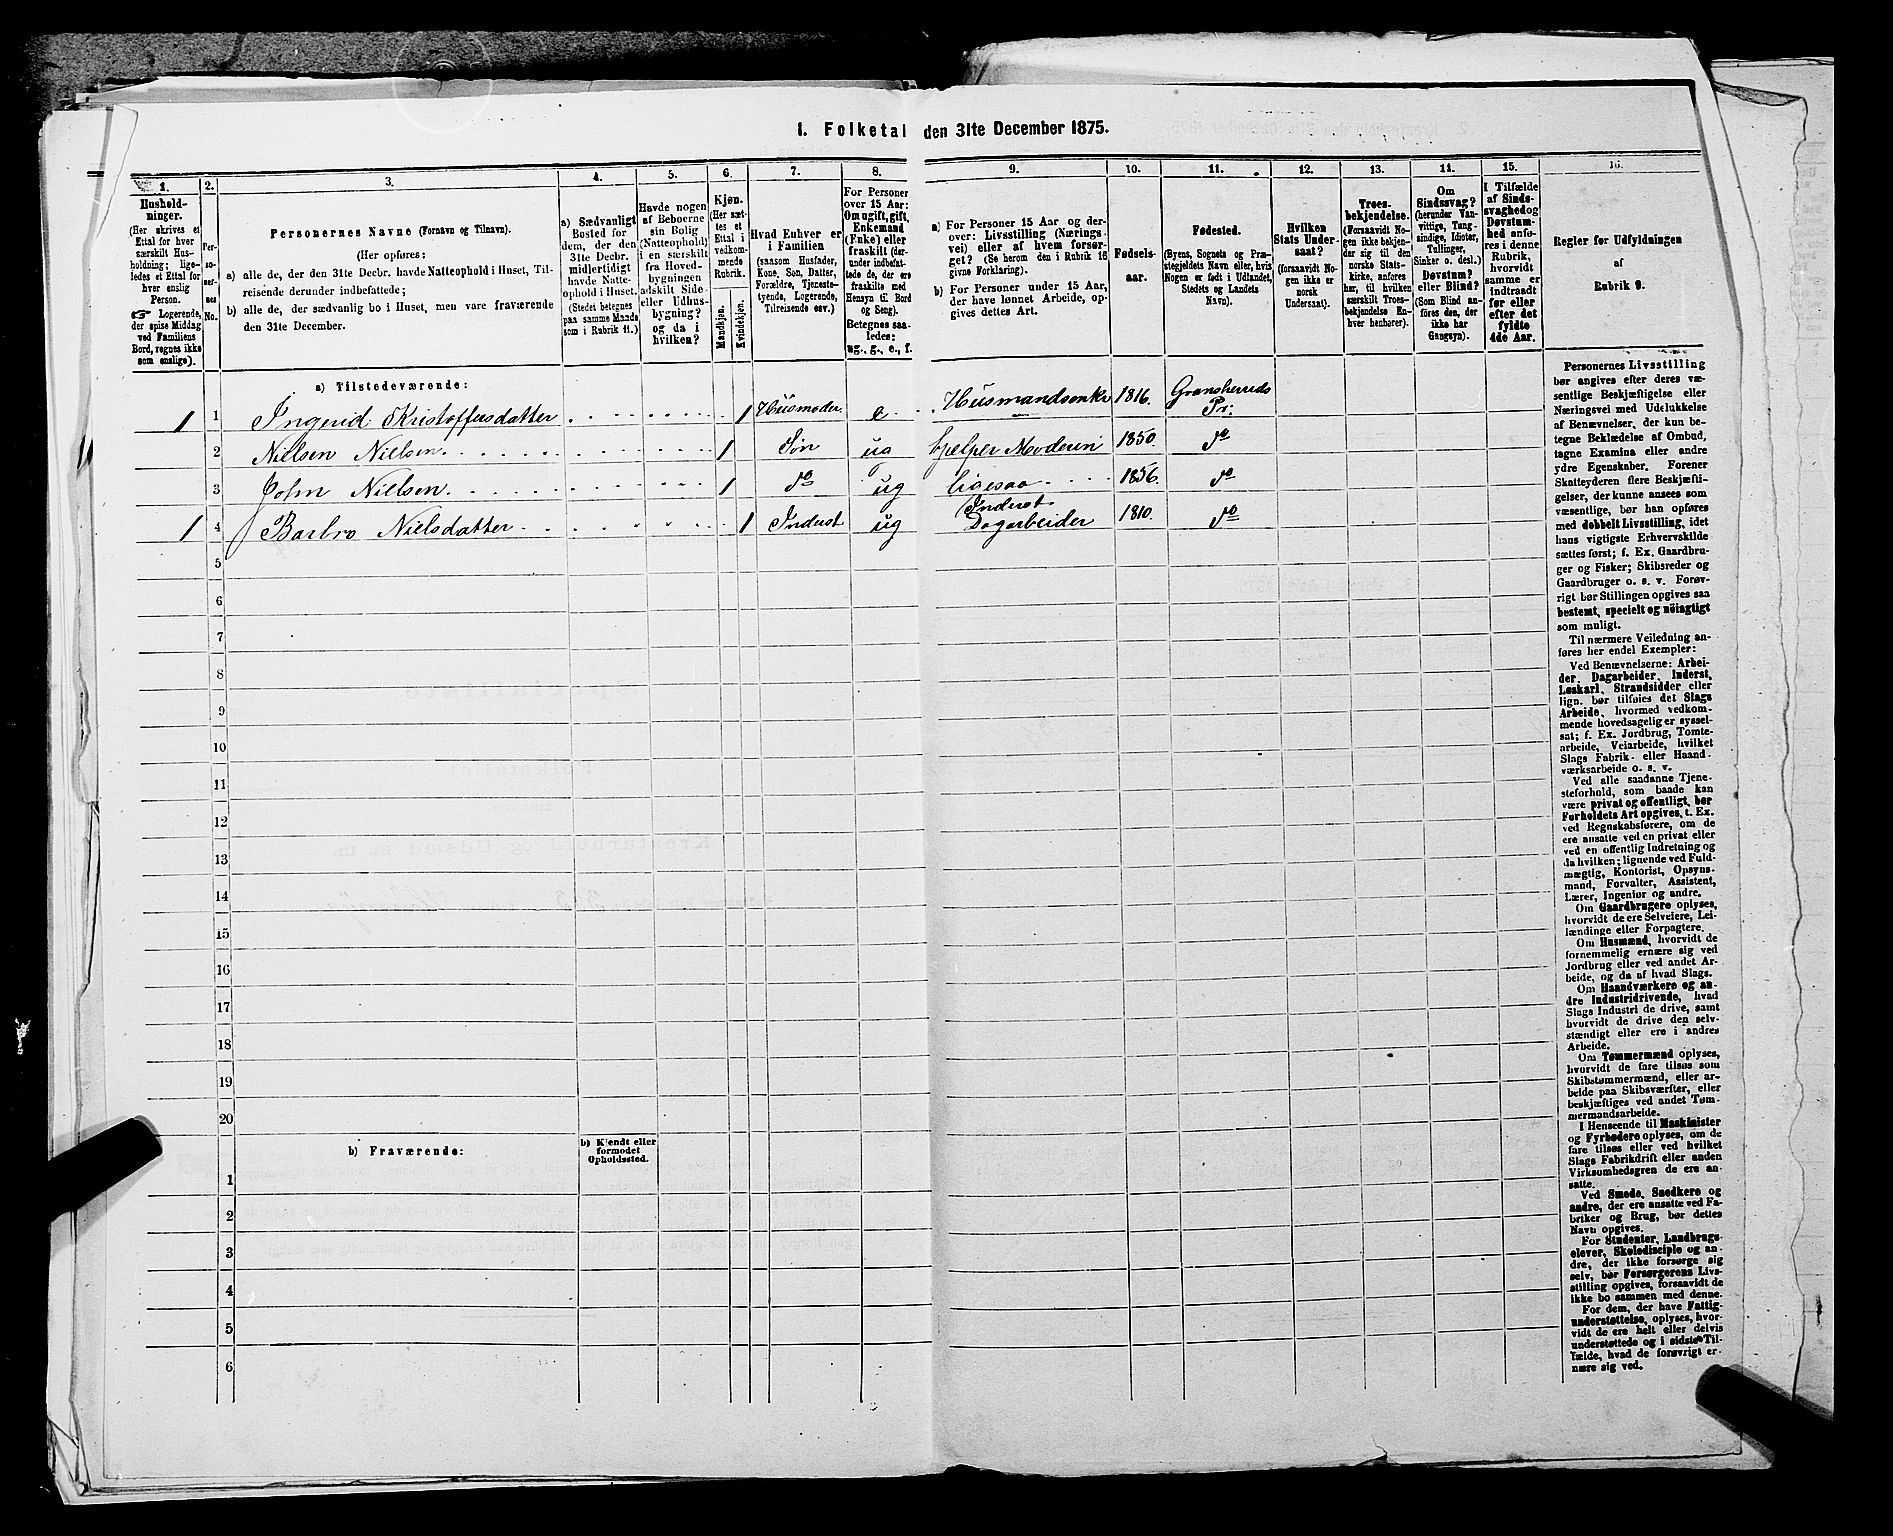 1. Folketal den 31te December 1875.
1. 2. 3. 4. 5. 6. 7. 8. 9. 10. 11. 12. 13. 14. 15. 16.
Hushold-
ninger.
(Her skrives et
Ettal for hver
særskilt Hus-
holdning; lige-
ledes et Ettal for
hver enslig
Person.
☞ Logerende,
der spise Middag
ved Familiens
Bord, regnes ikke
som enslige).
Per-
so-
ner-
nes
No.
Personernes Navne (Fornavn og Tilnavn).
(Her opføres:
a) alle de, der den 31te Decbr. havde Natteophold i Huset, Til-
reisende derunder indbefattede;
b) alle de, der sædvanlig bo i Huset, men vare fraværende
den 31te December.
a) Sædvanligt
Bosted for
dem, der den
31te Decbr.
midlertidigt
havde Natte-
ophold i Huset.
(Stedet betegnes
paa samme Maade
som i Rubrik 11.)
Havde nogen
af Beboerne
sin Bolig
(Natteophold)
i en særskilt
fra Hoved-
bygningen
adskilt Side-
eller Udhus-
bygning?
og da i
hvilken?
Kjøn.
(Her sæt-
tes et
Ettal i
vedkom-
mende
Rubrik.
Mandkjøn.
Kvindekjøn.
Hvad Enhver er
i Familien
(saasom Husfader,
Kone, Søn, Datter,
Forældre, Tjeneste-
tyende, Logerende,
Tilreisende osv.)
For Personer
over 15 Aar:
Om ugift, gift,
Enkemand
(Enke) eller
fraskilt (der-
under indbefat-
tede de, der ere
fraskilte med
Hensyn til Bord
og Seng).
Betegnes saa-
ledes:
ug., g., e., f.
a) For Personer 15 Aar og der-
over: Livsstilling (Nærings-
vei) eller af hvem forsør-
get? (Se herom den i Rubrik 16
givne Forklaring).
b) For Personer under 15 Aar,
der have lønnet Arbeide, op-
gives dettes Art.
Fødsels-
aar.
Fødested.
(Byens, Sognets og Præ-
stegjeldets Navn eller, hvis
Nogen er født i Udlandet,
Stedets og Landets
Navn).
Hvilken
Stats Under-
saat?
(forsaavidt No-
gen ikke er
norsk
Undersaat).
Troes-
bekjendelse.
(Forsaavidt No-
gen ikke bekjen-
der sig til den
norske Stats-
kirke, anføres
her, til hvilken
særskilt Troes-
bekjendelse En-
hver henhører).
Om
Sindssvag?
(herunder Van-
vittige, Tung-
sindige, Idioter,
Tullinger,
Sinker o. desl.)
Døvstum?
eller Blind?
(Som Blind an-
føres den, der
ikke har
Gangsyn).
I Tilfælde
af Sinds-
svaghed og
Døvstum-
hed anfø-
res i denne
Rubrik,
hvorvidt
samme er
indtraadt
før eller
efter det
fyldte
4de Aar.
Regler for Udfyldningen
af
Rubrik 9.
a) Tilstedeværende:
1 1 Ingerid Kristoffersdatter 1 Husmoder e Husmandsenke 1816. Gransherreds Pr:
2 Nielsen Nielsen 1 Søn ug hjelper Moderen 1850. do
3 John Nielsen 1 do ug ligesaa 1856. do
1 4 Barbro Nielsdatter 1 Inderst ug Inderst Dagarbeider 1810. do
5
6
7
8
9
10
11
12
13
14
15
16
17
18
19
20
b) Fraværende:
b) Kjendt eller
formodet
Opholdssted.
1
2
3
4
5
6
Personernes Livsstilling
bør angives efter deres væ-
sentlige Beskjæftigelse eller
Næringsvei med Udelukkelse
af Benævnelser, der kun be-
tegne Beklædelse af Ombud,
tagne Examina eller andre
ydre Egenskaber. Forener
Skatteyderen flere Beskjæfti-
gelser, der kunne ansees som
væsentlige, bør han opføres
med dobbelt Livsstilling, idet
hans vigtigste Erhvervskilde
sættes først; f. Ex. Gaardbru-
ger og Fisker; Skibsreder og
Gaardbruger o. s. v. Forøv-
rigt bør Stillingen opgives saa
bestemt, specielt og nöiagtigt
som muligt.
Til nærmere Veiledning an-
føres her endel Exempler:
Ved Benævnelserne: Arbei-
der, Dagarbeider, Inderst,
Løskarl, Strandsidder eller
lign. bør tilføies det Slags
Arbeide, hvormed vedkom-
mende hovedsagelig er syssel-
sat; f. Ex. Jordbrug, Tomte-
arbeide, Veiarbeide, hvilket
Slags Fabrik- eller Haand-
værksarbeide o. s. v.
Ved alle saadanne Tjene-
steforhold, som baade kan
være privat og offentligt, bør
Forholdets Art opgives, t. Ex.
ved Regnskabsførere, om de
ere ansatte ved en privat eller
ved en offentlig Indretning og
da hvilken; lignende ved Fuld-
mægtig, Kontorist, Opsyns-
mand, Forvalter, Assistent,
Lærer, Ingeniør og andre.
Om Gaardbrugere oplyses,
hvorvidt de ere Selveiere, Lei-
lændinge eller Forpagtere.
Om Husmænd, hvorvidt de
fornemmelig ernære sig ved
Jordbrug eller ved andet Ar-
beide, og da af hvad Slags.
Om Haandværkere og an-
dre Industridrivende, hvad
Slags Industri de drive, samt
hvorvidt de drive den selv-
stændigt eller ere i andres
Arbeide.
Om Tømmermænd oplyses,
hvorvidt de fare tilsøs som
Skibstømmermænd, eller ar-
beide paa Skibsværfter, eller
beskjæftiges ved andet Tøm-
mermandsarbeide.
I Henseende til Maskinister
og Fyrbødere oplyses, om de
fare tilsøs eller ved hvilket
Slags Fabrikdrift eller anden
Virksomhedsgren de ere an-
satte.
Ved Smede, Snedkere og
andre, der ere ansatte ved Fa-
briker og Brug, bør dettes
Navn opgives.
For Studenter, Landbrugs-
elever, Skoledisciple og an-
dre, der ikke forsørge sig
selv, bør Forsørgerens Livs-
stilling opgives, forsaavidt de
ikke bo sammen med denne.
For dem, der have Fattig-
understøttelse, oplyses, hvor-
vidt de ere helt eller delvis
understøttede og i sidste Til-
fælde, hvad de forøvrigt er-
nære sig ved.